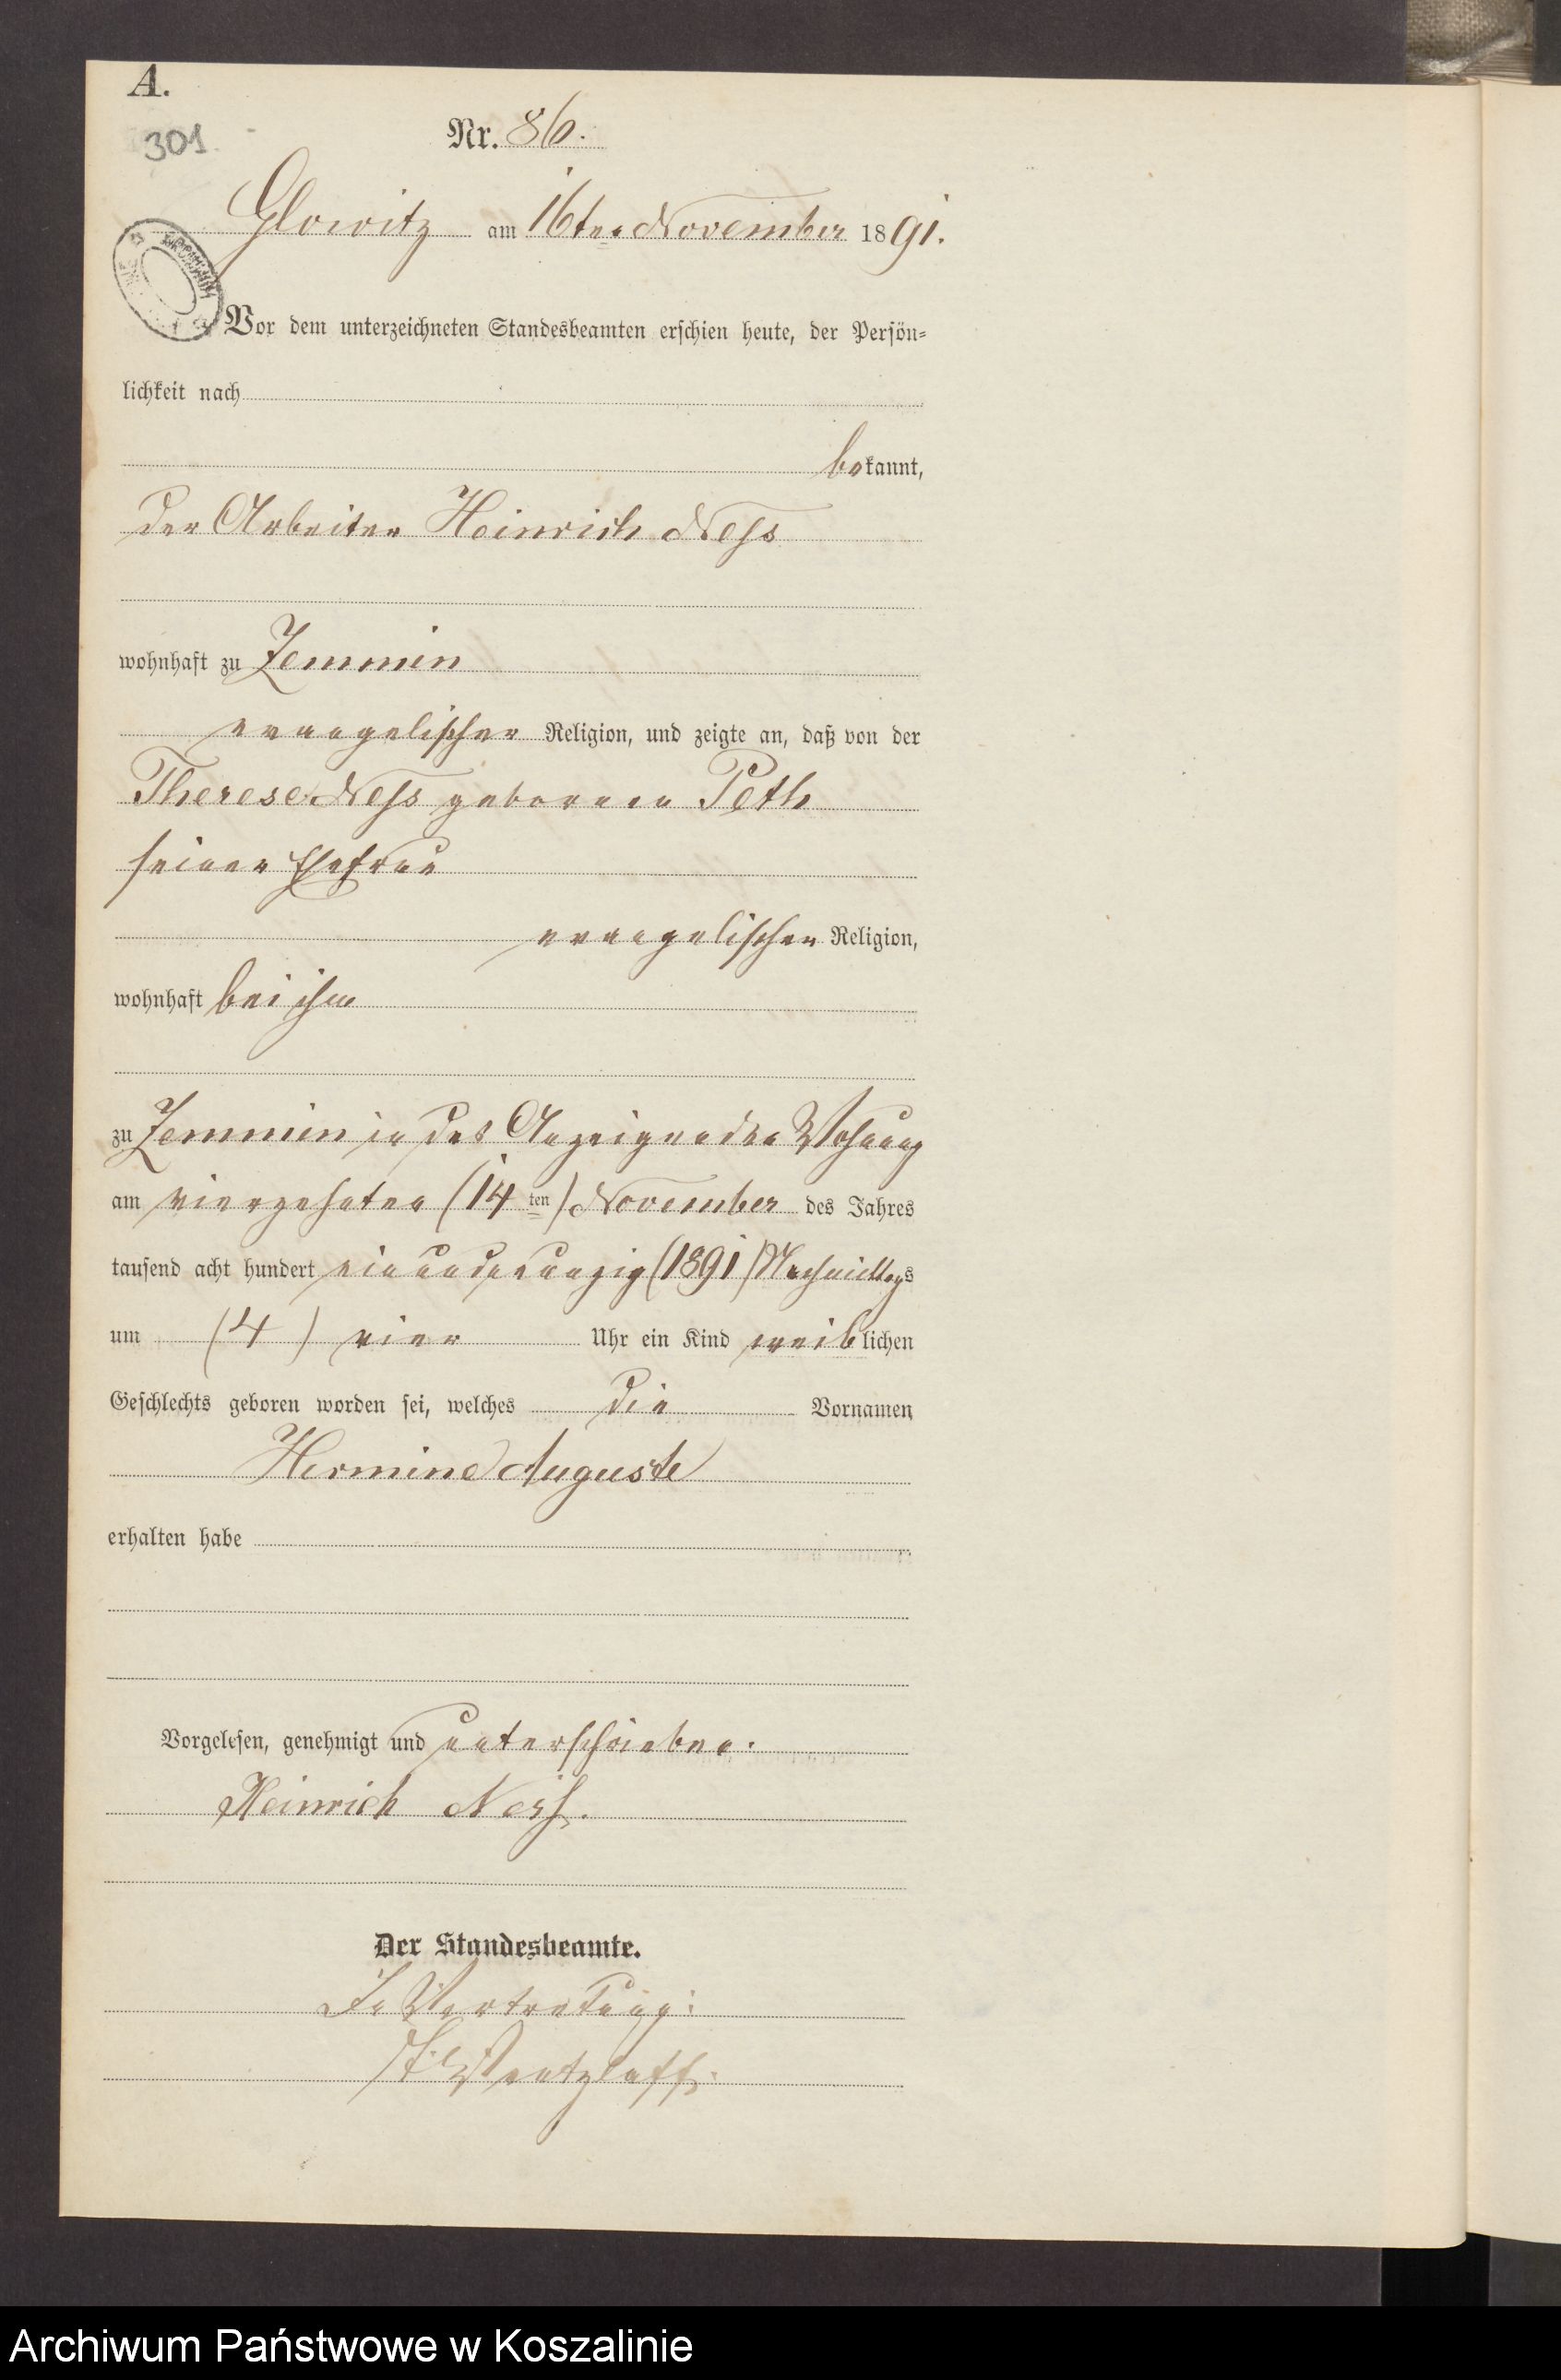 A.
301
Nr. 86.
Glowitz am 16ten November 1891.
Vor dem unterzeichneten Standesbeamten erschien heute, der Persön-
lichkeit nach
bekannt,
der Arbeiter Heinrich Neſs
wohnhaft zu Zemmin
evangelischer Religion, und zeigte an, daß von der
Therese Neſs geborenen Peth
seiner Ehefrau
evangelischer Religion,
wohnhaft bei ihm
zu Zemmin in des Anzeigenden Wohnung
am vierzehnten (14ten) November des Jahres
tausend acht hundert ein und neunzig (1891) Nachmittags
um (4) vier Uhr ein Kind weiblichen
Geschlechts geboren worden sei, welches die Vornamen
Hermine Auguste
erhalten habe
Vorgelesen, genehmigt und unterschrieben.
Heinrich Neſs.
Der Standesbeamte.
In Vertretung:
Wentzlaff.
Archiwum Państwowe w Koszalinie